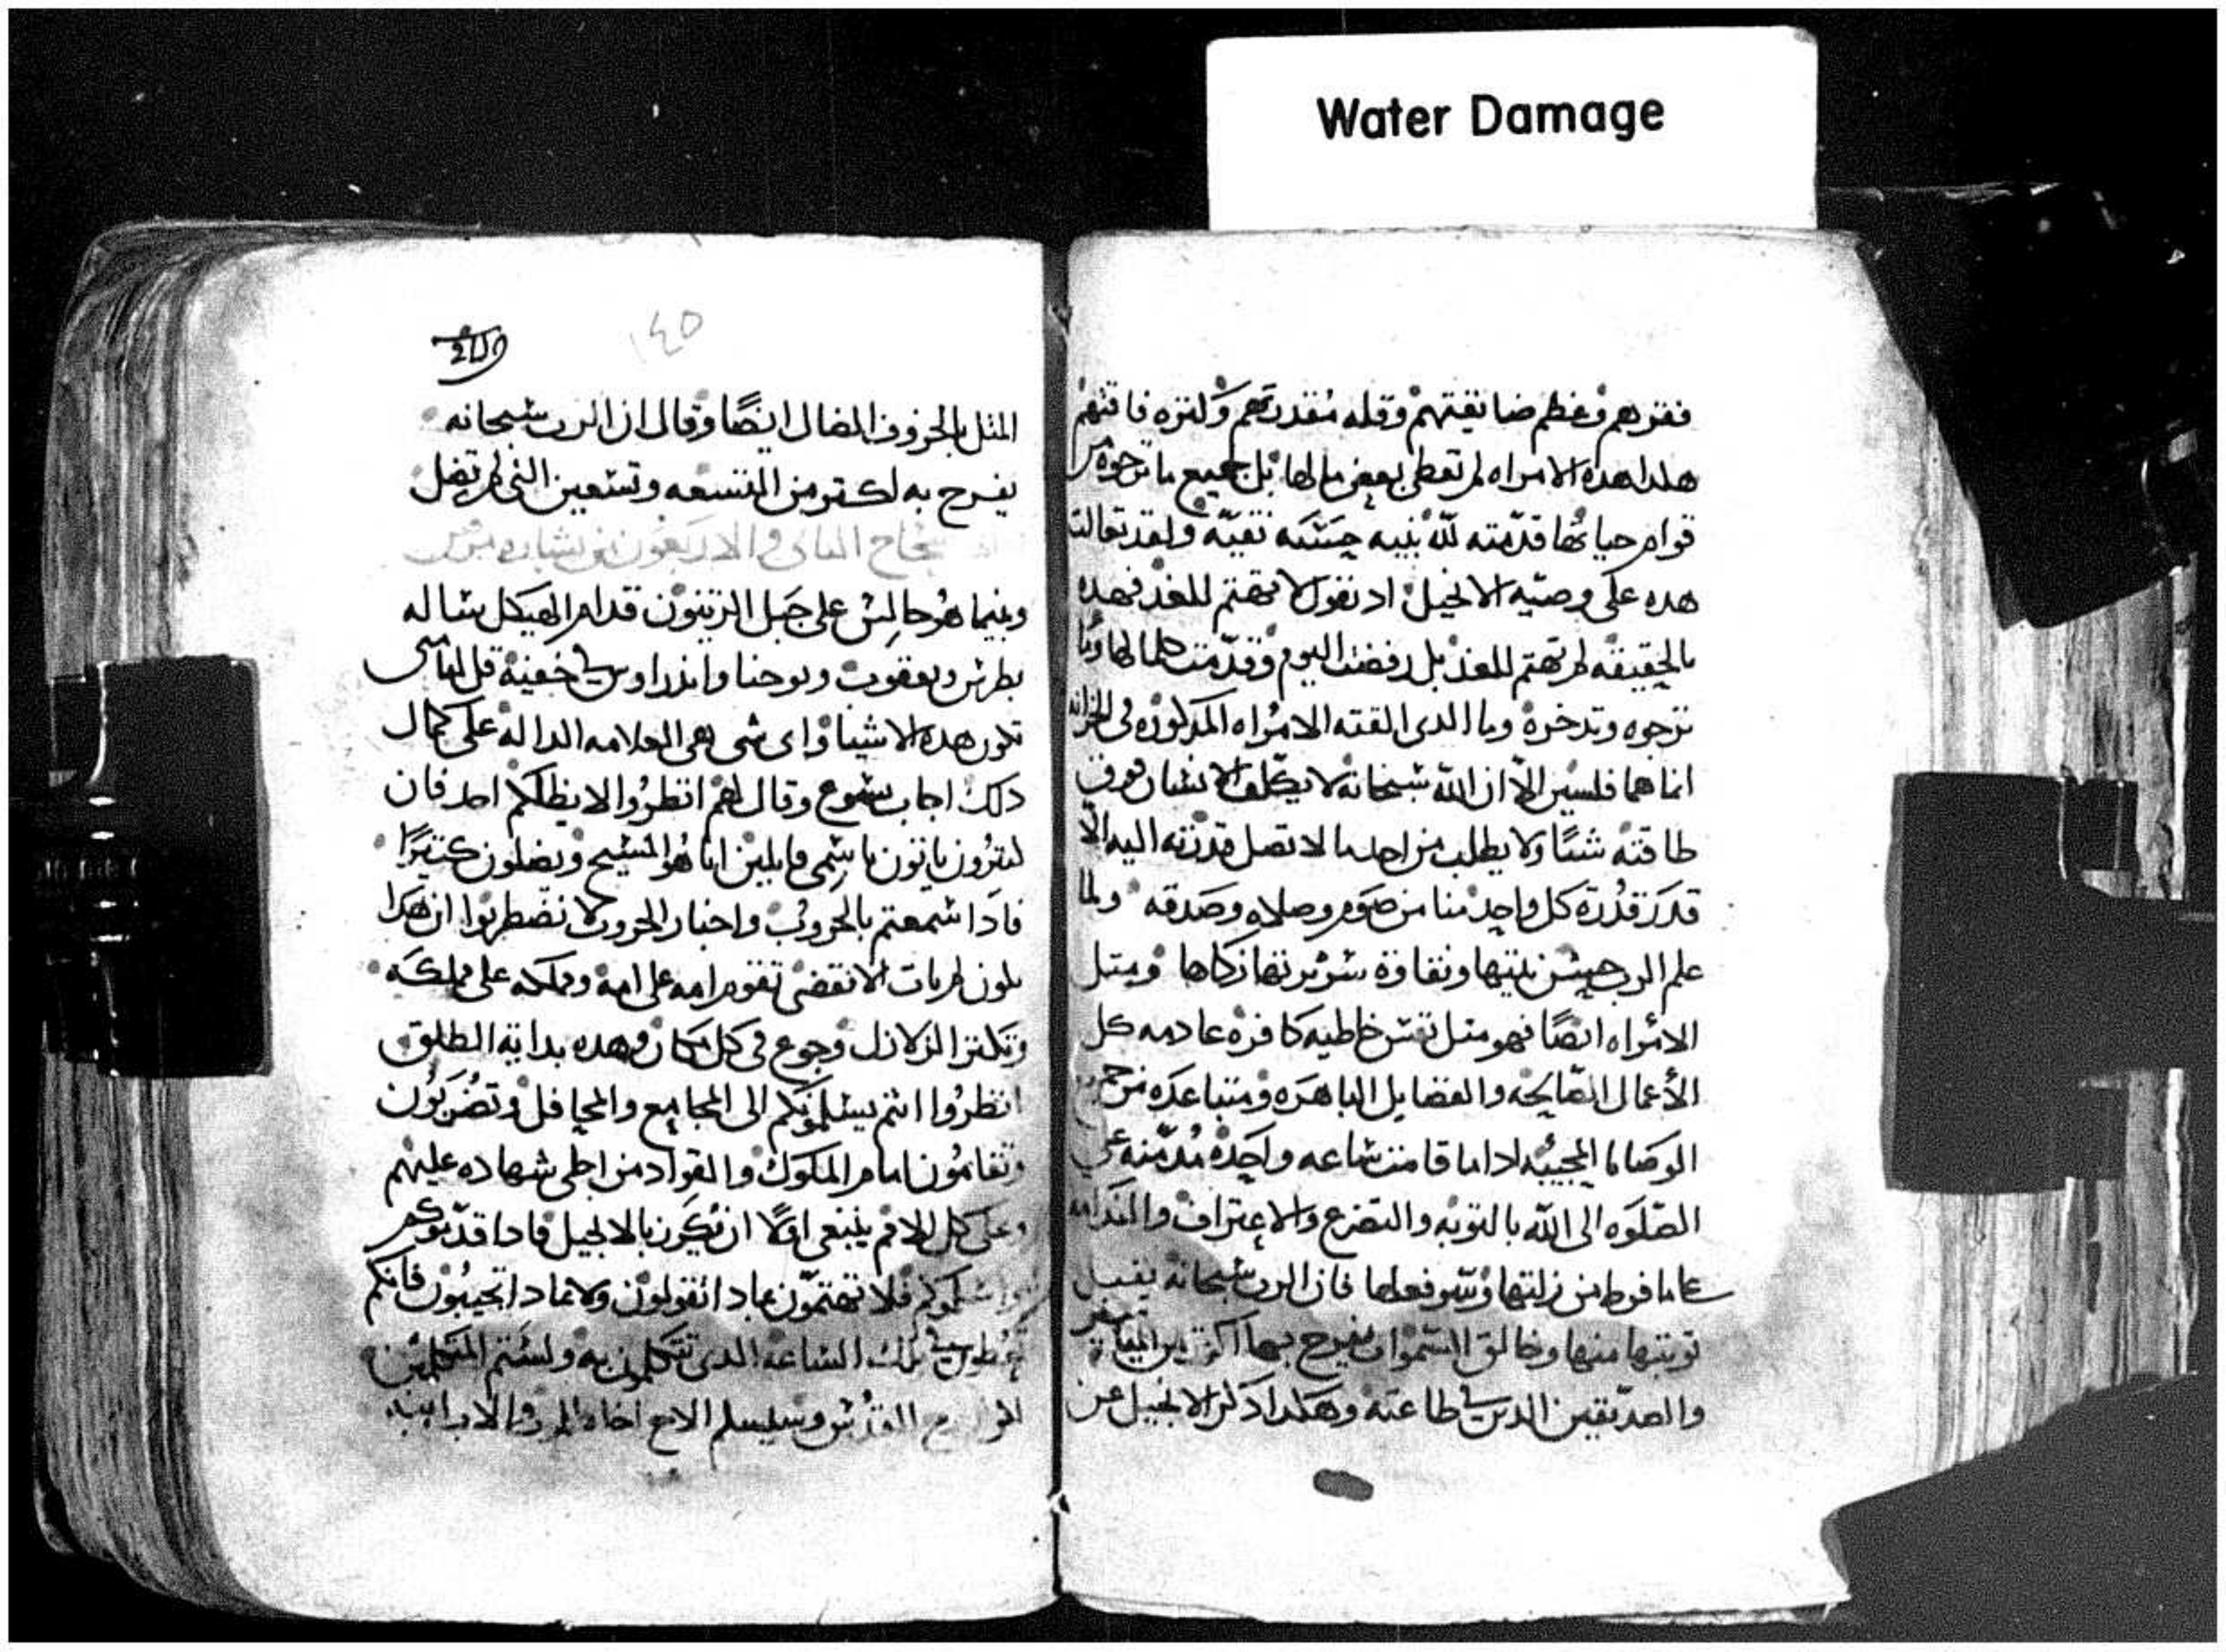 Water Damage
فقرهم وعظم ضايقتهم وقله مقدرتهم ولتره فاقتهم
هلدا هده الامراه لم تعطي بعض مالها بل جميع ما ترجوه من
قوام حياتها قدمته لله بنيه حسنه نقيه ولقد تعالت
هده على وصيه الانجيل اد تقول لا تهتم للغد فهده
بالحقيقه لم تهتم للغد بل رفضت اليوم وقدمت كلما لها وما
ترجوه وتدخره وما الدى القته الامراه المدلوره في الخزانه
انما هما فلسين الا ان الله سبحانه لا يكلف الانسان فوق
طاقته شيا ولا يطلب من احد ما لا تصل قدرته اليه الا
قدر قدرة كل واحد منا من صوم وصلاه وصدقه ولما
علم الرب حسن نيتها ونقاوة سريرتها زكاها ومتل
الامراه ايضا فهو متل نفس خاطيه كافره عادمه كل
الأعمال الصالحه والفضايل الباهره ومتباعده من
الوصايا المحييه اداما قامت ساعه واحده مدمنه على
الصلوه الى الله بالتوبه والتضرع والاعتراف والندامه
عاما فرط من زلتها وسو فعلها فان الرب سبحانه يقبل
توبتها منها وخالق السموات يفرح بها اكتر من
والصديقين الدين في طاعته وهكدا ادلر الانجيل عن
١٤٥
المتل بالخروف الضال ايضا وقال ان الرب سبحانه
يفرح به اكتر من التسعه وتسعين التي لم تضل
الاصحاح التاني والاربعون من بشارة مرقس
وبينما هو جالس على جبل الزيتون قدام الهيكل ساله
بطرس ويعقوب ويوحنا واندراوس في خفية قل لنا متى
تلون هده الاشيا واى شى هى العلامه الداله على كمال
دلك اجاب يسوع وقال لهم انظروا لا يظلكم احد فان
لتيرون ياتون باسمى قايلين انا هو المسيح ويضلون كتيرا
فادا سمعتم بالحروب واخبار الحروب لا تضطربوا ان هدا
يلون لم يات الانقضى تقوم امه على امه ومملكه على مملكه
وتكتر الزلازل وجوع في كل مكان وهده بداية الطلق
انظروا انتم يسلمونكم الى المجامع والمحافل وتضربون
وتقامون امام الملوك والقواد من اجلى شهاده عليهم
وعلى كل الامم ينبغى اولا ان تكرز بالانجيل فادا قدموكم
واسلموكم فلا تهتمون بمادا تقولون ولا بمادا تجيبون فانكم
تعطون في تلك الساعه الدى تتكلمون به ولستم المتكلمين
لكن روح القدس وسيسلم الاخ اخاه للموت والاب ابنه